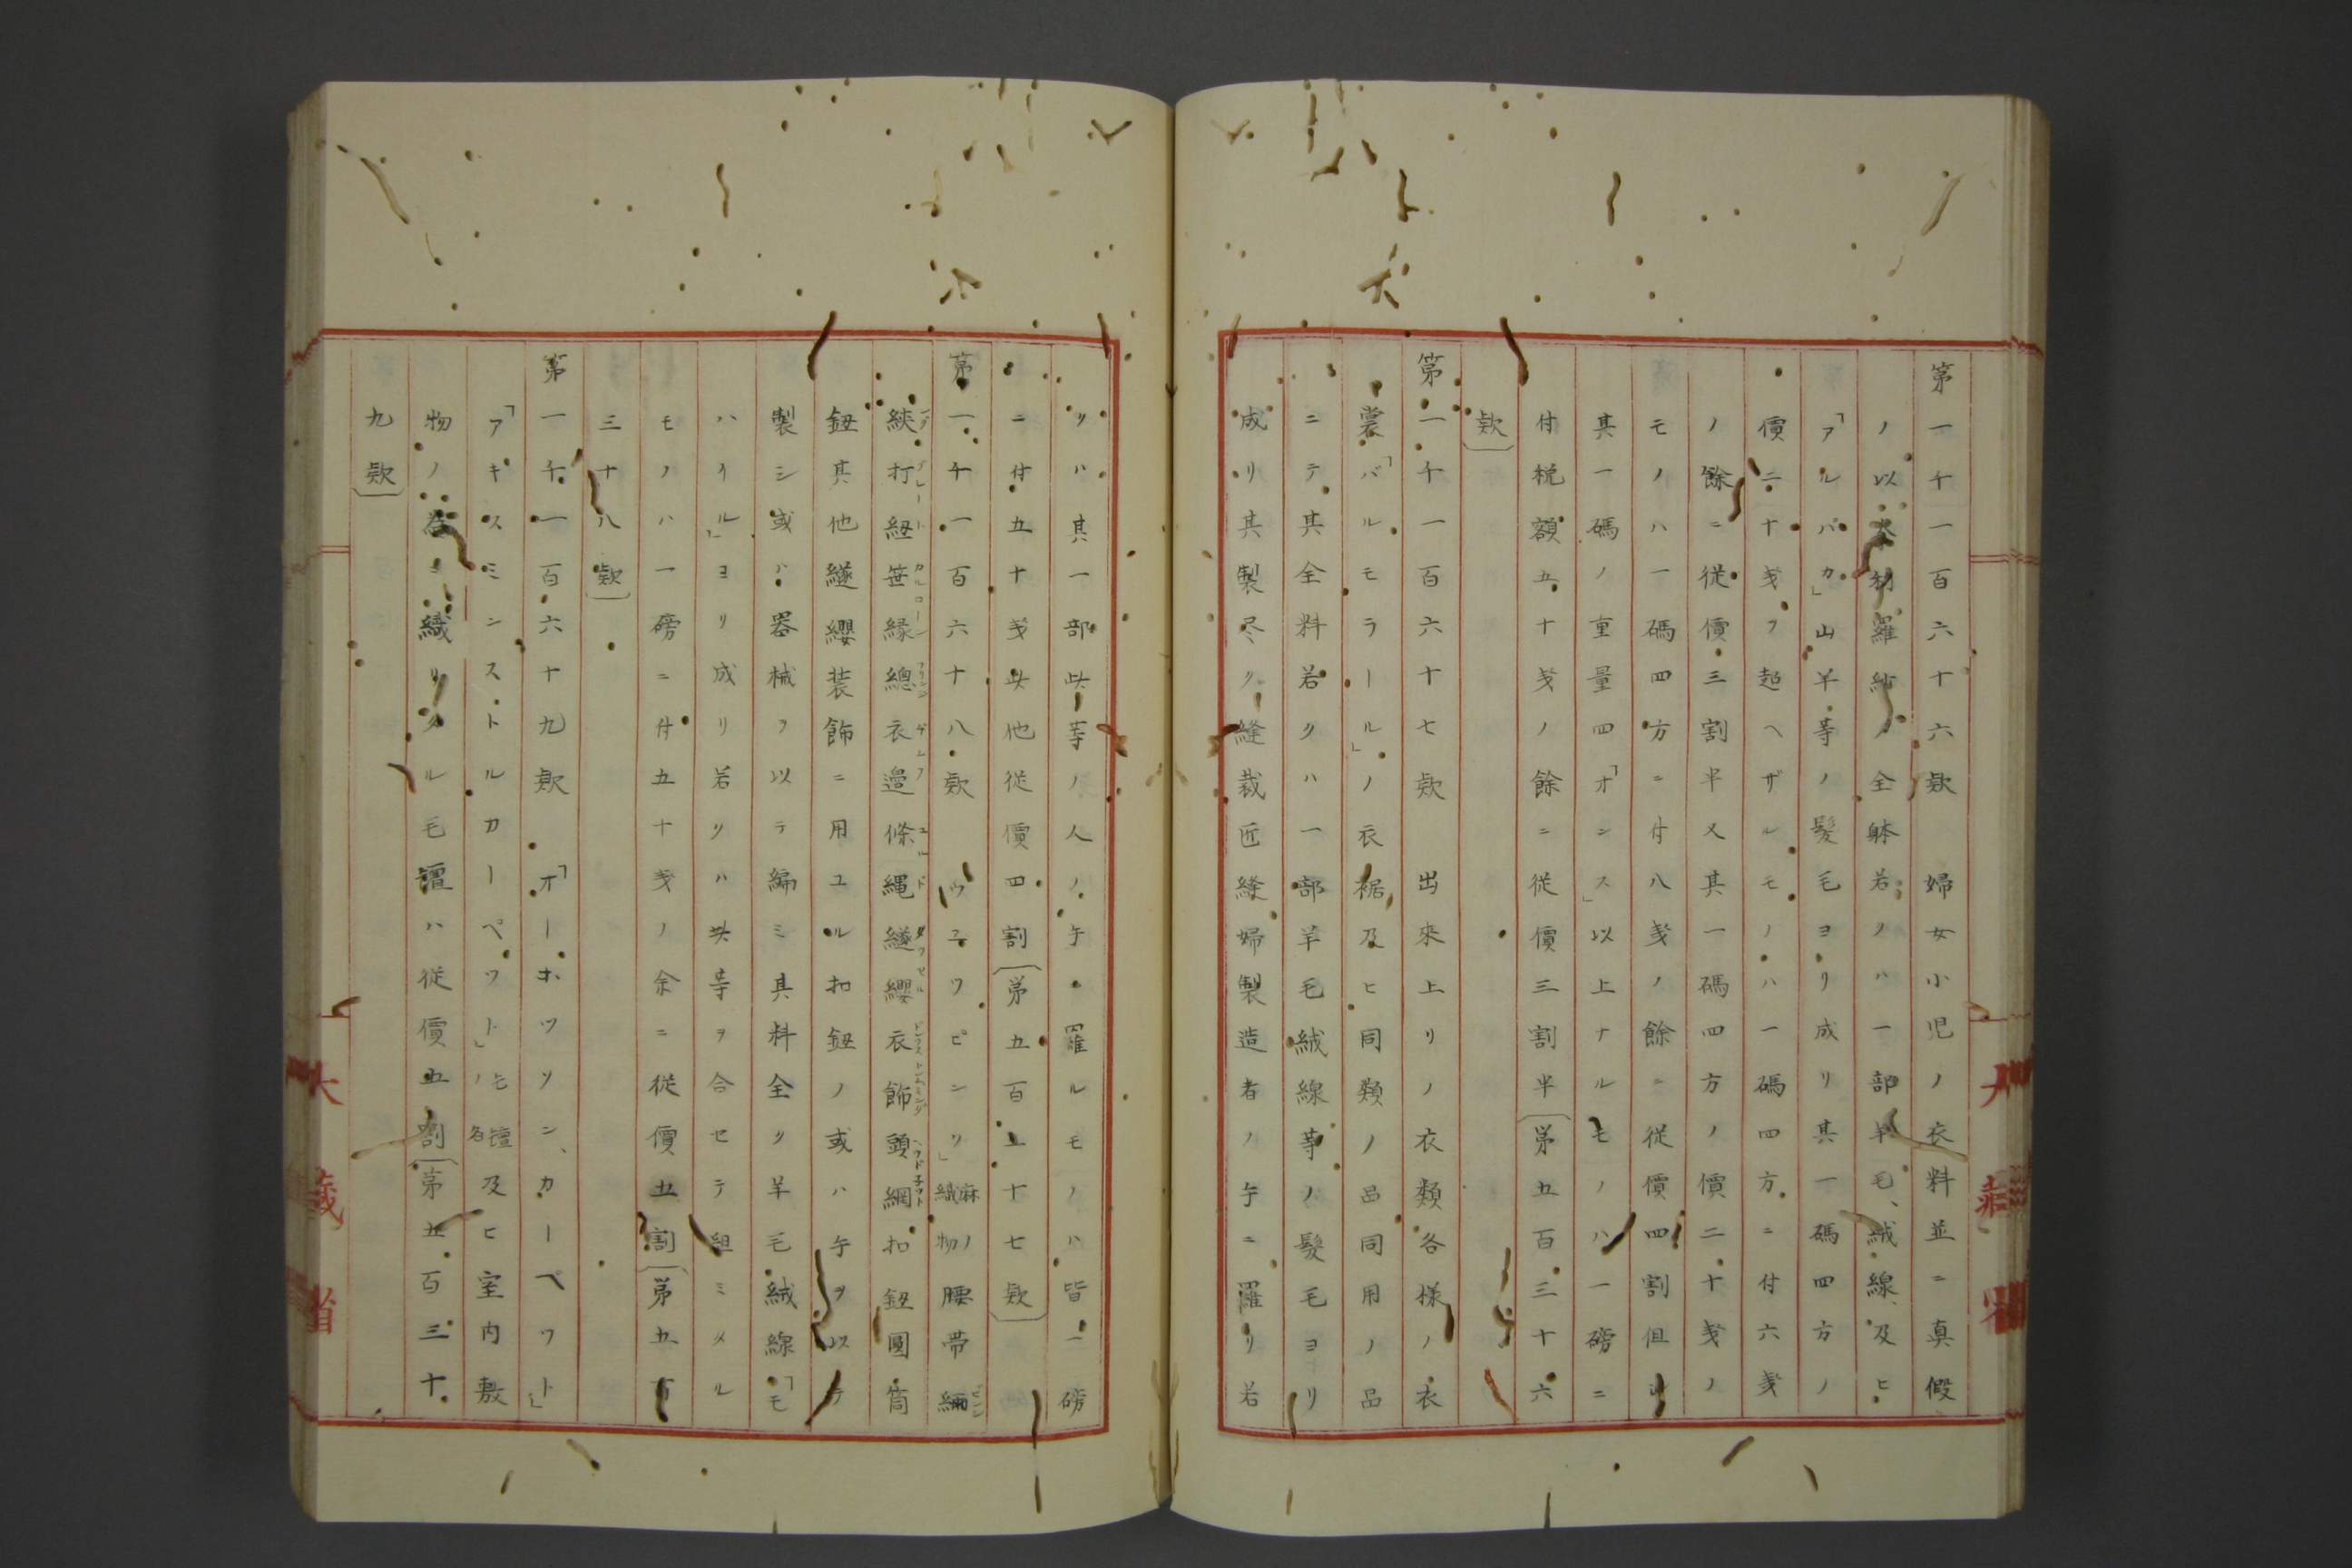 第一千一百六十六欵　婦女小児ノ衣料並ニ真假
ノ以太利羅紗ノ全躰若クハ一部羊毛、絨線、及ヒ
「アルパカ」山羊等ノ髪毛ヨリ成リ其一碼四方ノ
價二十戔ヲ超ヘザルモノハ一碼四方ニ付六戔
ノ餘ニ従價三割半又其一碼四方ノ價二十戔ノ
モノハ一碼四方ニ付八戔ノ餘ニ従價四割但シ
其一碼ノ重量四「オンス」以上ナルモノハ一磅ニ
付税額五十戔ノ餘ニ従價三割半〔第五百三十六
欵〕
第一千一百六十七欵　出來上リノ衣類各様ノ衣
裳「バルモラール」ノ衣裾及ヒ同類ノ品同用ノ品
ニテ其全料若クハ一部羊毛絨線等ノ髮毛ヨリ
成リ其製尽ク縫裁匠縫婦製造者ノ手ニ羅リ若
クハ其一部此等ノ人ノ手ニ羅ルモノハ皆一磅
ニ付五十戔此他従價四割〔第五百三十七欵〕
第一千一百六十八欵　「ウエツビンク」麻ノ織物腰帯編
絥打紐笹緣總衣邉條縄繸纓衣飾頭網扣鈕圓筒
鈕其他繸纓装飾ニ用ユル扣鈕ノ或ハ手ヲ以テ
製シ或ハ器械ヲ以テ編ミ其料全ク羊毛絨線「モ
ハイル」ヨリ成リ若クハ此等ヲ合セテ組ミタル
モノハ一磅ニ付五十戔ノ余ニ従價五割〔第五百
三十八欵〕
第一千一百六十九欵　「オーホツソン、カーペツト」
「アキスミンストルカーペツト」毛氊ノ名及ヒ室内敷
物ノ為ニ織リタル毛氊ハ従價五割〔第五百三十
九欵〕
大藏省